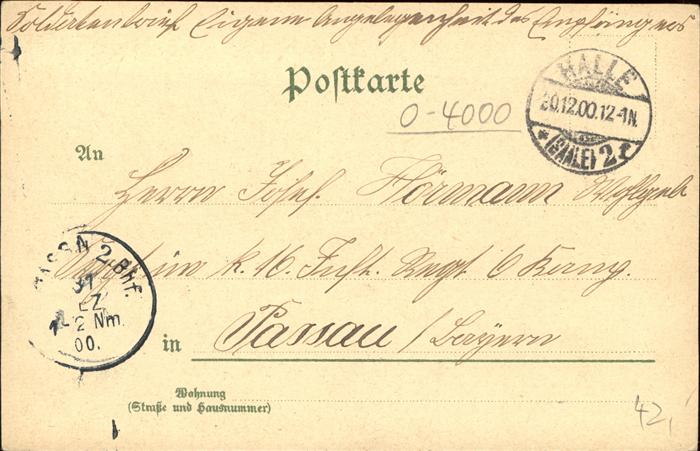 Soldatenbrief Eigene Angelegenheit des Empfängers
Postkarte
HALLE
30.12.00.12-1N.
*(SAALE) 2 f
0-4000
An
Herrn Josef Hörmann Wohlgeb
k. 16. Inft. Regt. 6 Komp.
PASSAU 2. Bhf.
31
DEZ
2 Nm.
00.
in Passau / Bayern
Wohnung
(Straße und Hausnummer)
42,